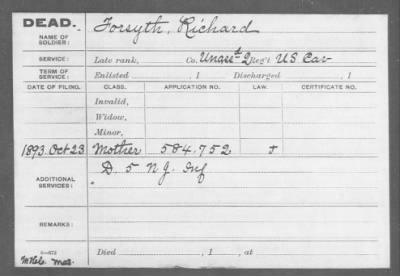 DEAD.
NAME OF SOLDIER:
Forsyth, Richard
SERVICE:
Late rank, Co. Unas'd 2 Reg't US Cav
TERM OF SERVICE:
Enlisted , 1 Discharged , 1
DATE OF FILING. CLASS. APPLICATION NO. LAW. CERTIFICATE NO.
Invalid,
Widow,
Minor,
1893 Oct 23 Mother 584.752
ADDITIONAL SERVICES:
D. 5 N.J. Inf
REMARKS:
Died , 1 , at